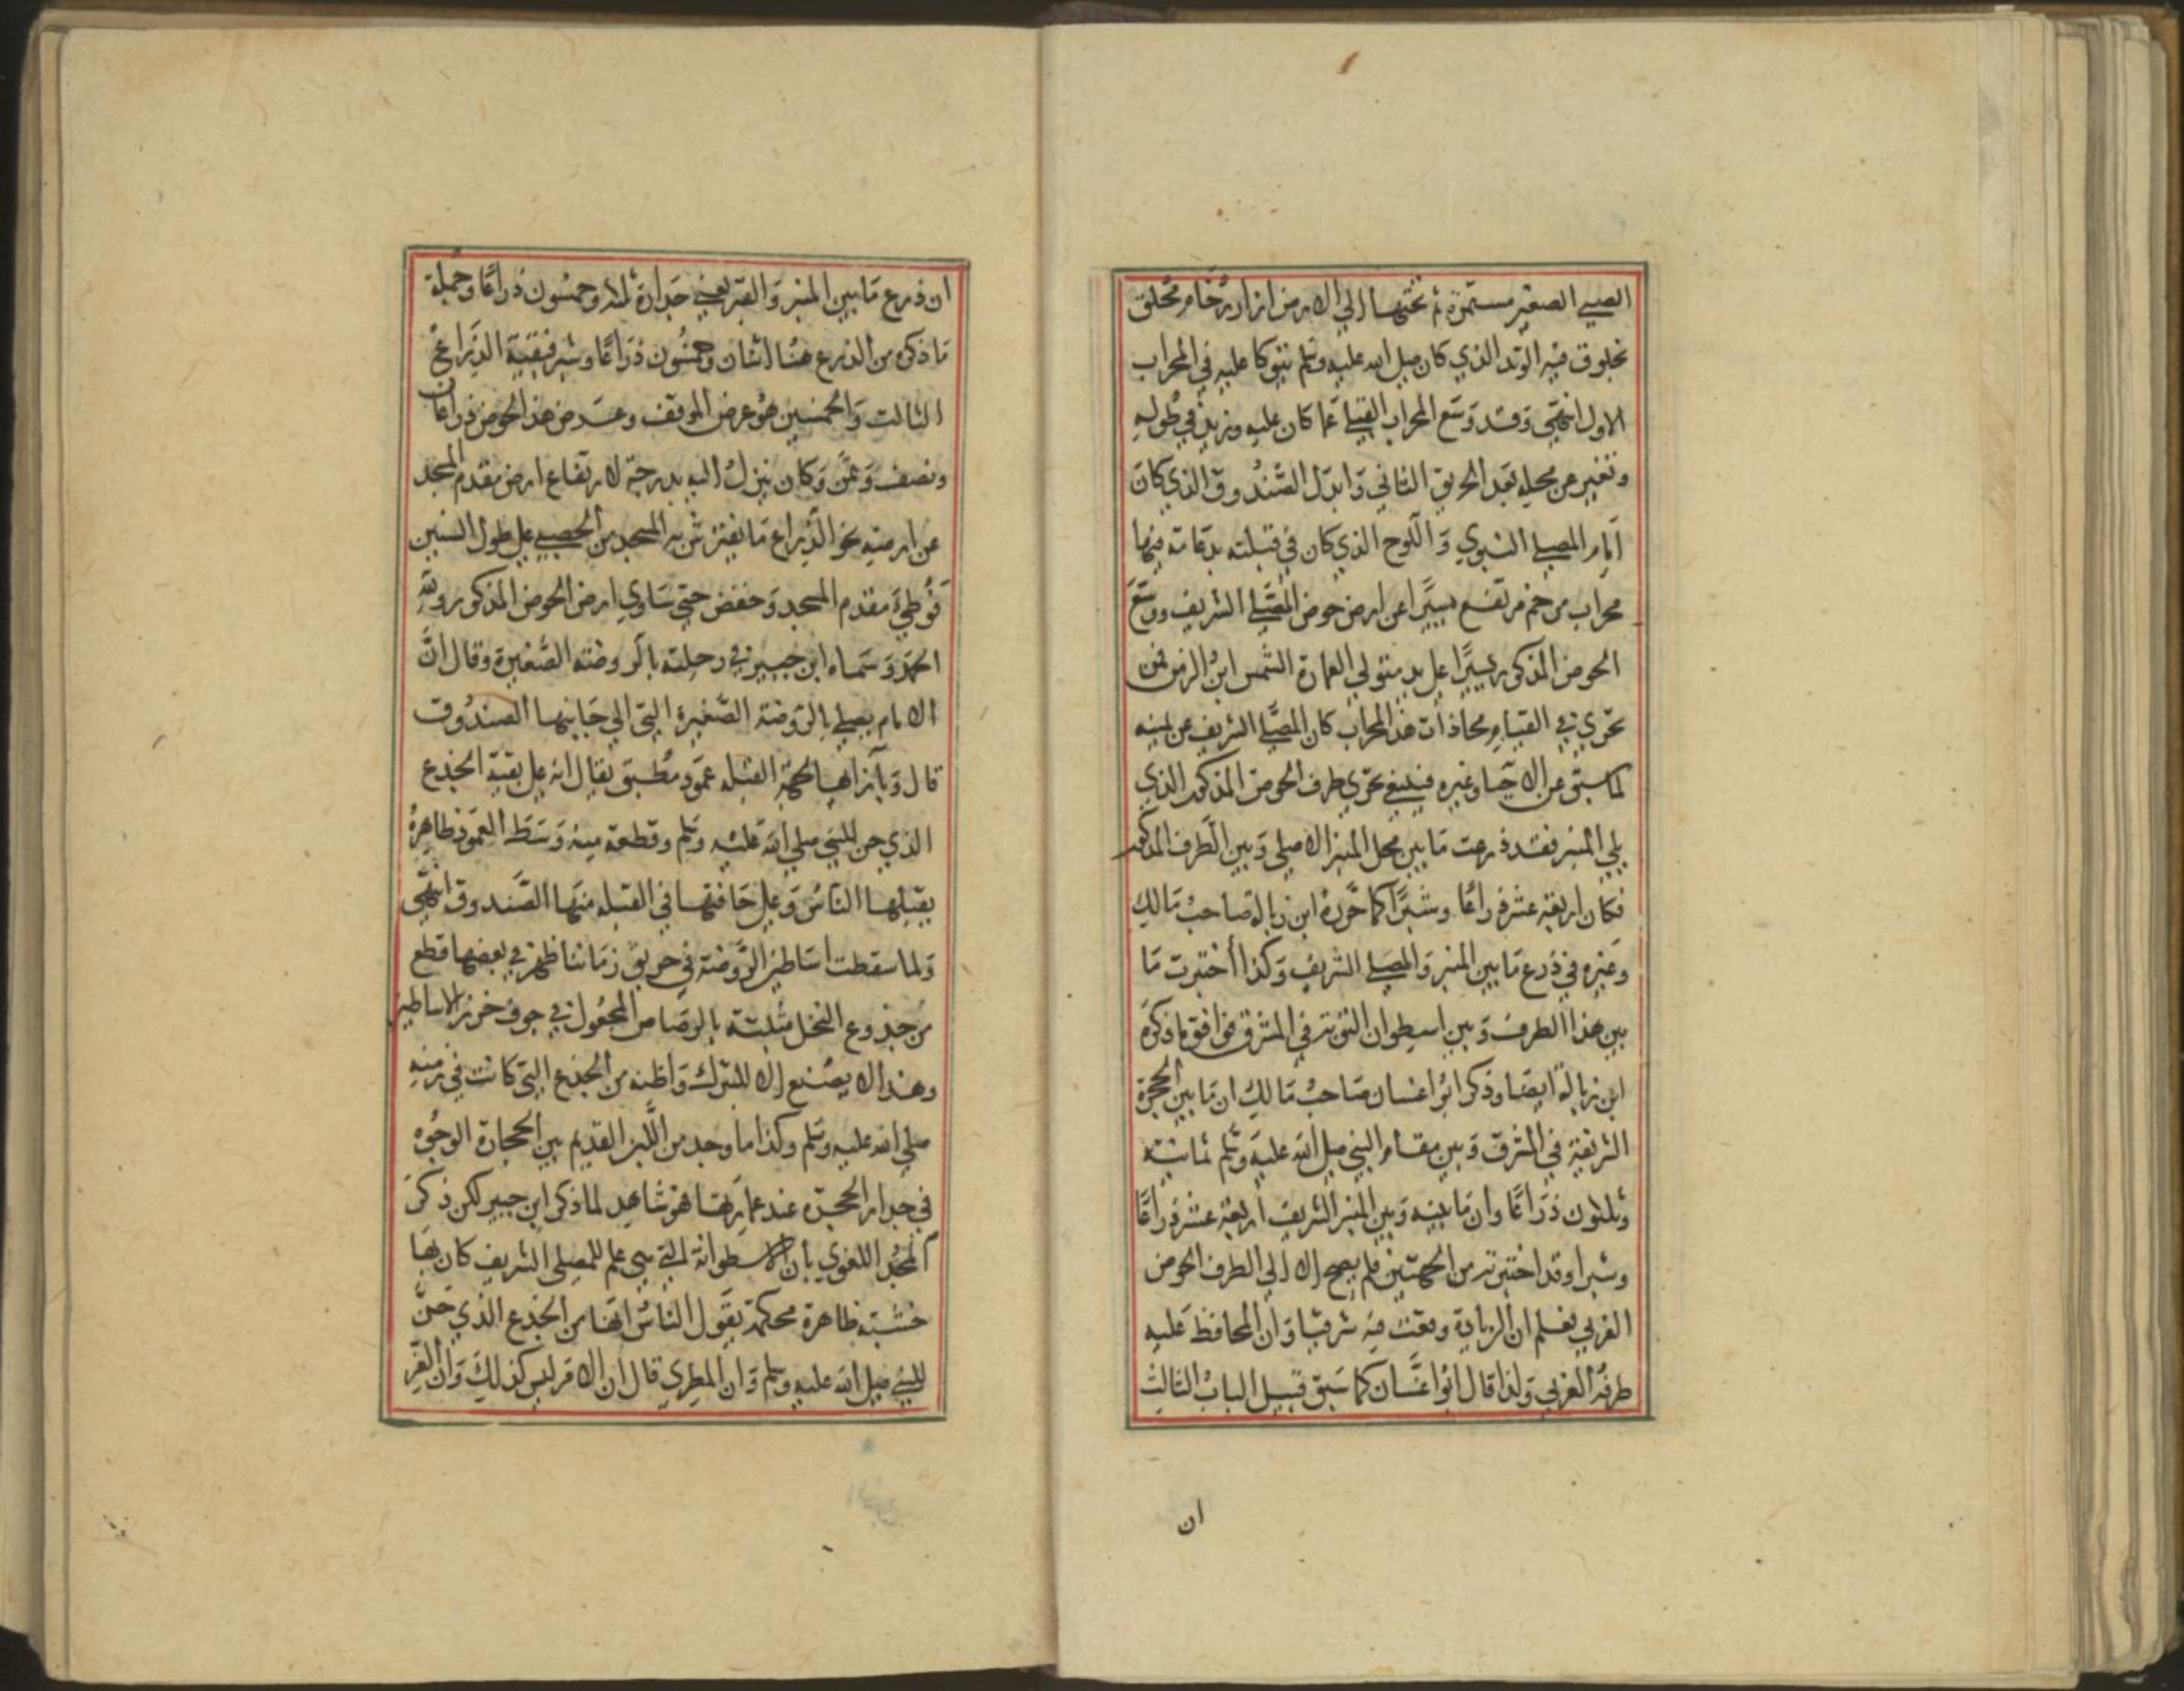 الصبي الصغير مستمرة ثم تحتها الي الارض ازار رخام مخلق
بخلوق فيه الوتد الذي كان صلى الله عليه وسلم يتوكا عليه في المحراب
الاول انتهى وقد وسع المحراب القبلي عما كان عليه وزيد في طوله
وتغير عن محله بعد الحريق الثاني وابدل الصندوق الذي كان
امام المصلي النبوي واللوح الذي كان في قبلته بدعامة فيها
محراب مرخم مرتفع يسيرا عن ارض حوض المصلي الشريف ووسع
الحوض المذكور يسيرا على يد متولي العمارة الشمس ابن الزمن فمن
تحري في القيام محاذات هذا المحراب كان المصلي الشريف عن يمينه
لما سبق عن الاحيا وغيره فينبغي تحري طرف الحوض المذكور الذي
يلي المنبر فقد ذرعت ما بين محل المنبر الاصلي وبين الطرف المذكور
فكان اربعة عشر ذراعا وشبرا كما حرره ابن زبالة صاحب مالك
وغيره في ذرع ما بين المنبر والمصلي الشريف وكذا اختبرت ما
بين هذا الطرف وبين اسطوان التوبة في المشرق فوافق ما ذكره
ابن زبالة ايضا وذكر ابوا غسان صاحب مالك ان ما بين الحجرة
الشريفة في المشرق وبين مقام النبي صلى الله عليه وسلم ثمانية
وثلثون ذراعا وان ما بينه وبين المنبر الشريف اربعة عشر ذراعا
وشبرا وقد اختبرته من الجهتين فلم يصح الا الي الطرف الحوض
الغربي فعلم ان الزيادة وقعت فيه شرقيا وان المحافظ عليه
طرفه الغربي ولذا قال ابوا غسان كما سبق قبيل الباب الثالث
ان
ان ذرع ما بين المنبر والقبر يعني جداره ثلاث وخمسون ذراعا وجملة
ما ذكره من الذرع هنا اثنان وخمسون ذراعا وشبر فبقية الذراع
الثالث والخمسين هو عرض الموقف وعرض هذا الحوض ذراعان
ونصف وثمن وكان ينزل اليه بدرجة لارتفاع ارض مقدم المسجد
عن ارضيته نحو الذراع ما يفترش به المسجد من الحصبي على طول السنين
فوطي مقدم المسجد وخفض حتى ساوي ارض الحوض المذكور ولله
الحمد وسماه ابن جبير في رحلته بالروضة الصغيرة وقال ان
الامام يصلي بالروضة الصغيرة التي الي جانبها الصندوق
قال وبازاها لجهة القبلة عمود مطبق يقال انه على بقية الجذع
الذي حن للنبي صلى الله عليه وسلم وقطعة منه وسط العمود ظاهرة
يقبلها الناس وعلى حافتها في القبلة منها الصندوق انتهى
ولما سقطت اساطين الروضة في حريق زماننا ظهر في بعضها قطع
من جذوع النخل مثبتة بالرصاص المجعول في جوف خرز الاساطين
وهذا لا يصنع الا للتبرك واظنه من الجذع التي كانت في زمنه
صلى الله عليه وسلم وكذا ما وجد من اللبن القديم بين الحجارة الوجوه
في جدار الحجرة عند عمارتها هو شاهد لما ذكر ابن جبير لكن ذكر
المجد اللغوي بأن الاسطوانة التي هي علم للمصلى الشريف كان بها
خشبة ظاهرة محكمة يقول الناس انها من الجذع الذي حن
للنبي صلى الله عليه وسلم وان المطري قال ان الامر ليس كذلك وان العز